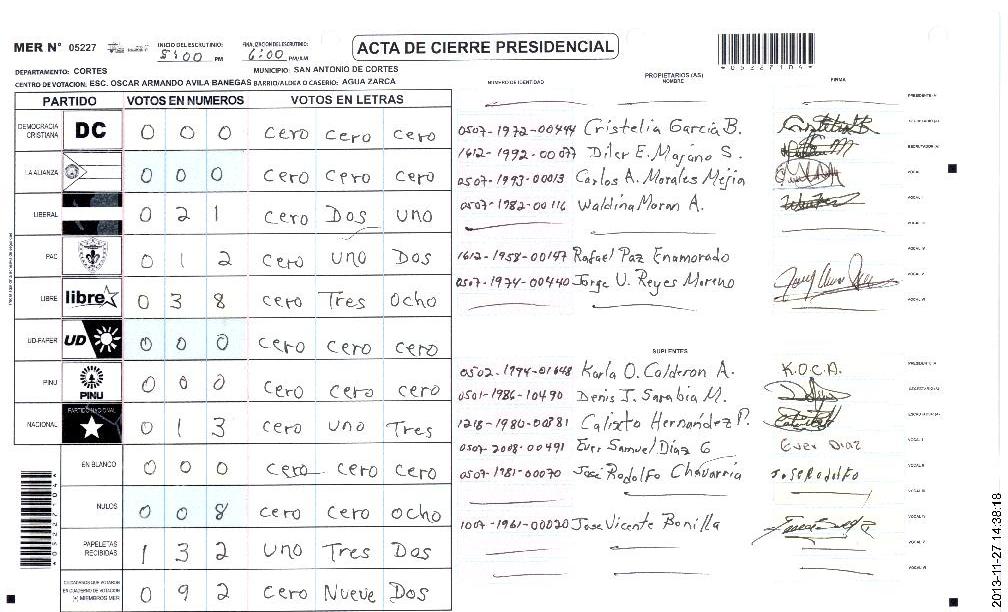 MER N° 05227
INICIO DEL ESCRUTINIO: 5:00 PM
FINALIZACION DEL ESCRUTINIO: 6:00 PM/AM
ACTA DE CIERRE PRESIDENCIAL
DEPARTAMENTO: CORTES
MUNICIPIO: SAN ANTONIO DE CORTES
CENTRO DE VOTACION: ESC. OSCAR ARMANDO AVILA BANEGAS BARRIO/ALDEA O CASERIO: AGUA ZARCA
PARTIDO VOTOS EN NUMEROS VOTOS EN LETRAS
DEMOCRACIA CRISTIANA DC 0 0 0 cero cero cero
LA ALIANZA 0 0 0 cero cero cero
LIBERAL 0 2 1 cero Dos uno
PAC 0 1 2 cero uno Dos
LIBRE libre 0 3 8 cero Tres ocho
UD-FAPER UD 0 0 0 cero cero cero
PINU PINU 0 0 0 cero cero cero
NACIONAL PARTIDO NACIONAL 0 1 3 cero uno Tres
EN BLANCO 0 0 0 cero cero cero
NULOS 0 0 8 cero cero ocho
PAPELETAS RECIBIDAS 1 3 2 uno Tres Dos
CIUDADANOS QUE VOTARON EN CUADERNO DE VOTACION (+) MIEMBROS MER 0 9 2 cero Nueve Dos
NUMERO DE IDENTIDAD
PROPIETARIOS (AS)
NOMBRE
FIRMA
0507-1972-00444 Cristelia Garcia B.
1612-1992-00077 Diler E. Majano S.
0507-1993-00013 Carlos A. Morales Mejia
0507-1982-00116 Waldina Moran A.
1612-1958-00147 Rafael Paz Enamorado
0507-1974-00440 Jorge U. Reyes Moreno
SUPLENTES
0502-1994-01648 Karla O. Calderon A. K.O.C.A.
0501-1986-10490 Denis J. Sarabia M.
1218-1980-00381 Calixto Hernández P.
0507-2008-00491 Ever Samuel Díaz G Ever Diaz
0507-1981-00070 José Rodolfo Chavarria JoseRodolfo
1007-1961-00020 Jose Vicente Bonilla
2013-11-27 14:38:18